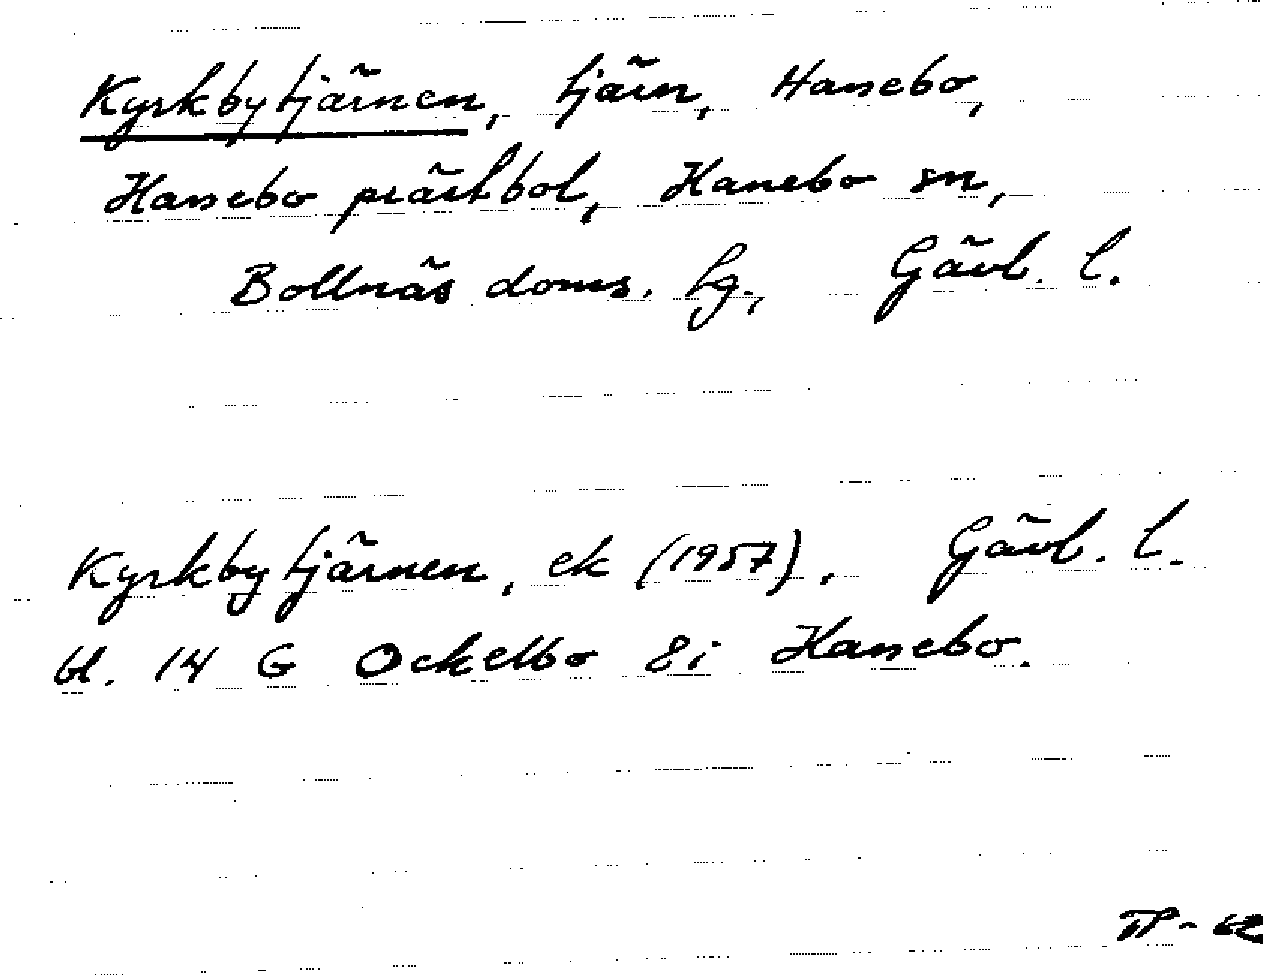 Kyrkbytjärnen, tjärn, Hanebo,
Hanebo prästbol, Hanebo sn,
Bollnäs doms. hg., Gävl. l.
Kyrkbytjärnen, ek (1957), Gävl. l.
bl. 14 G Ockelbo 8i Hanebo.